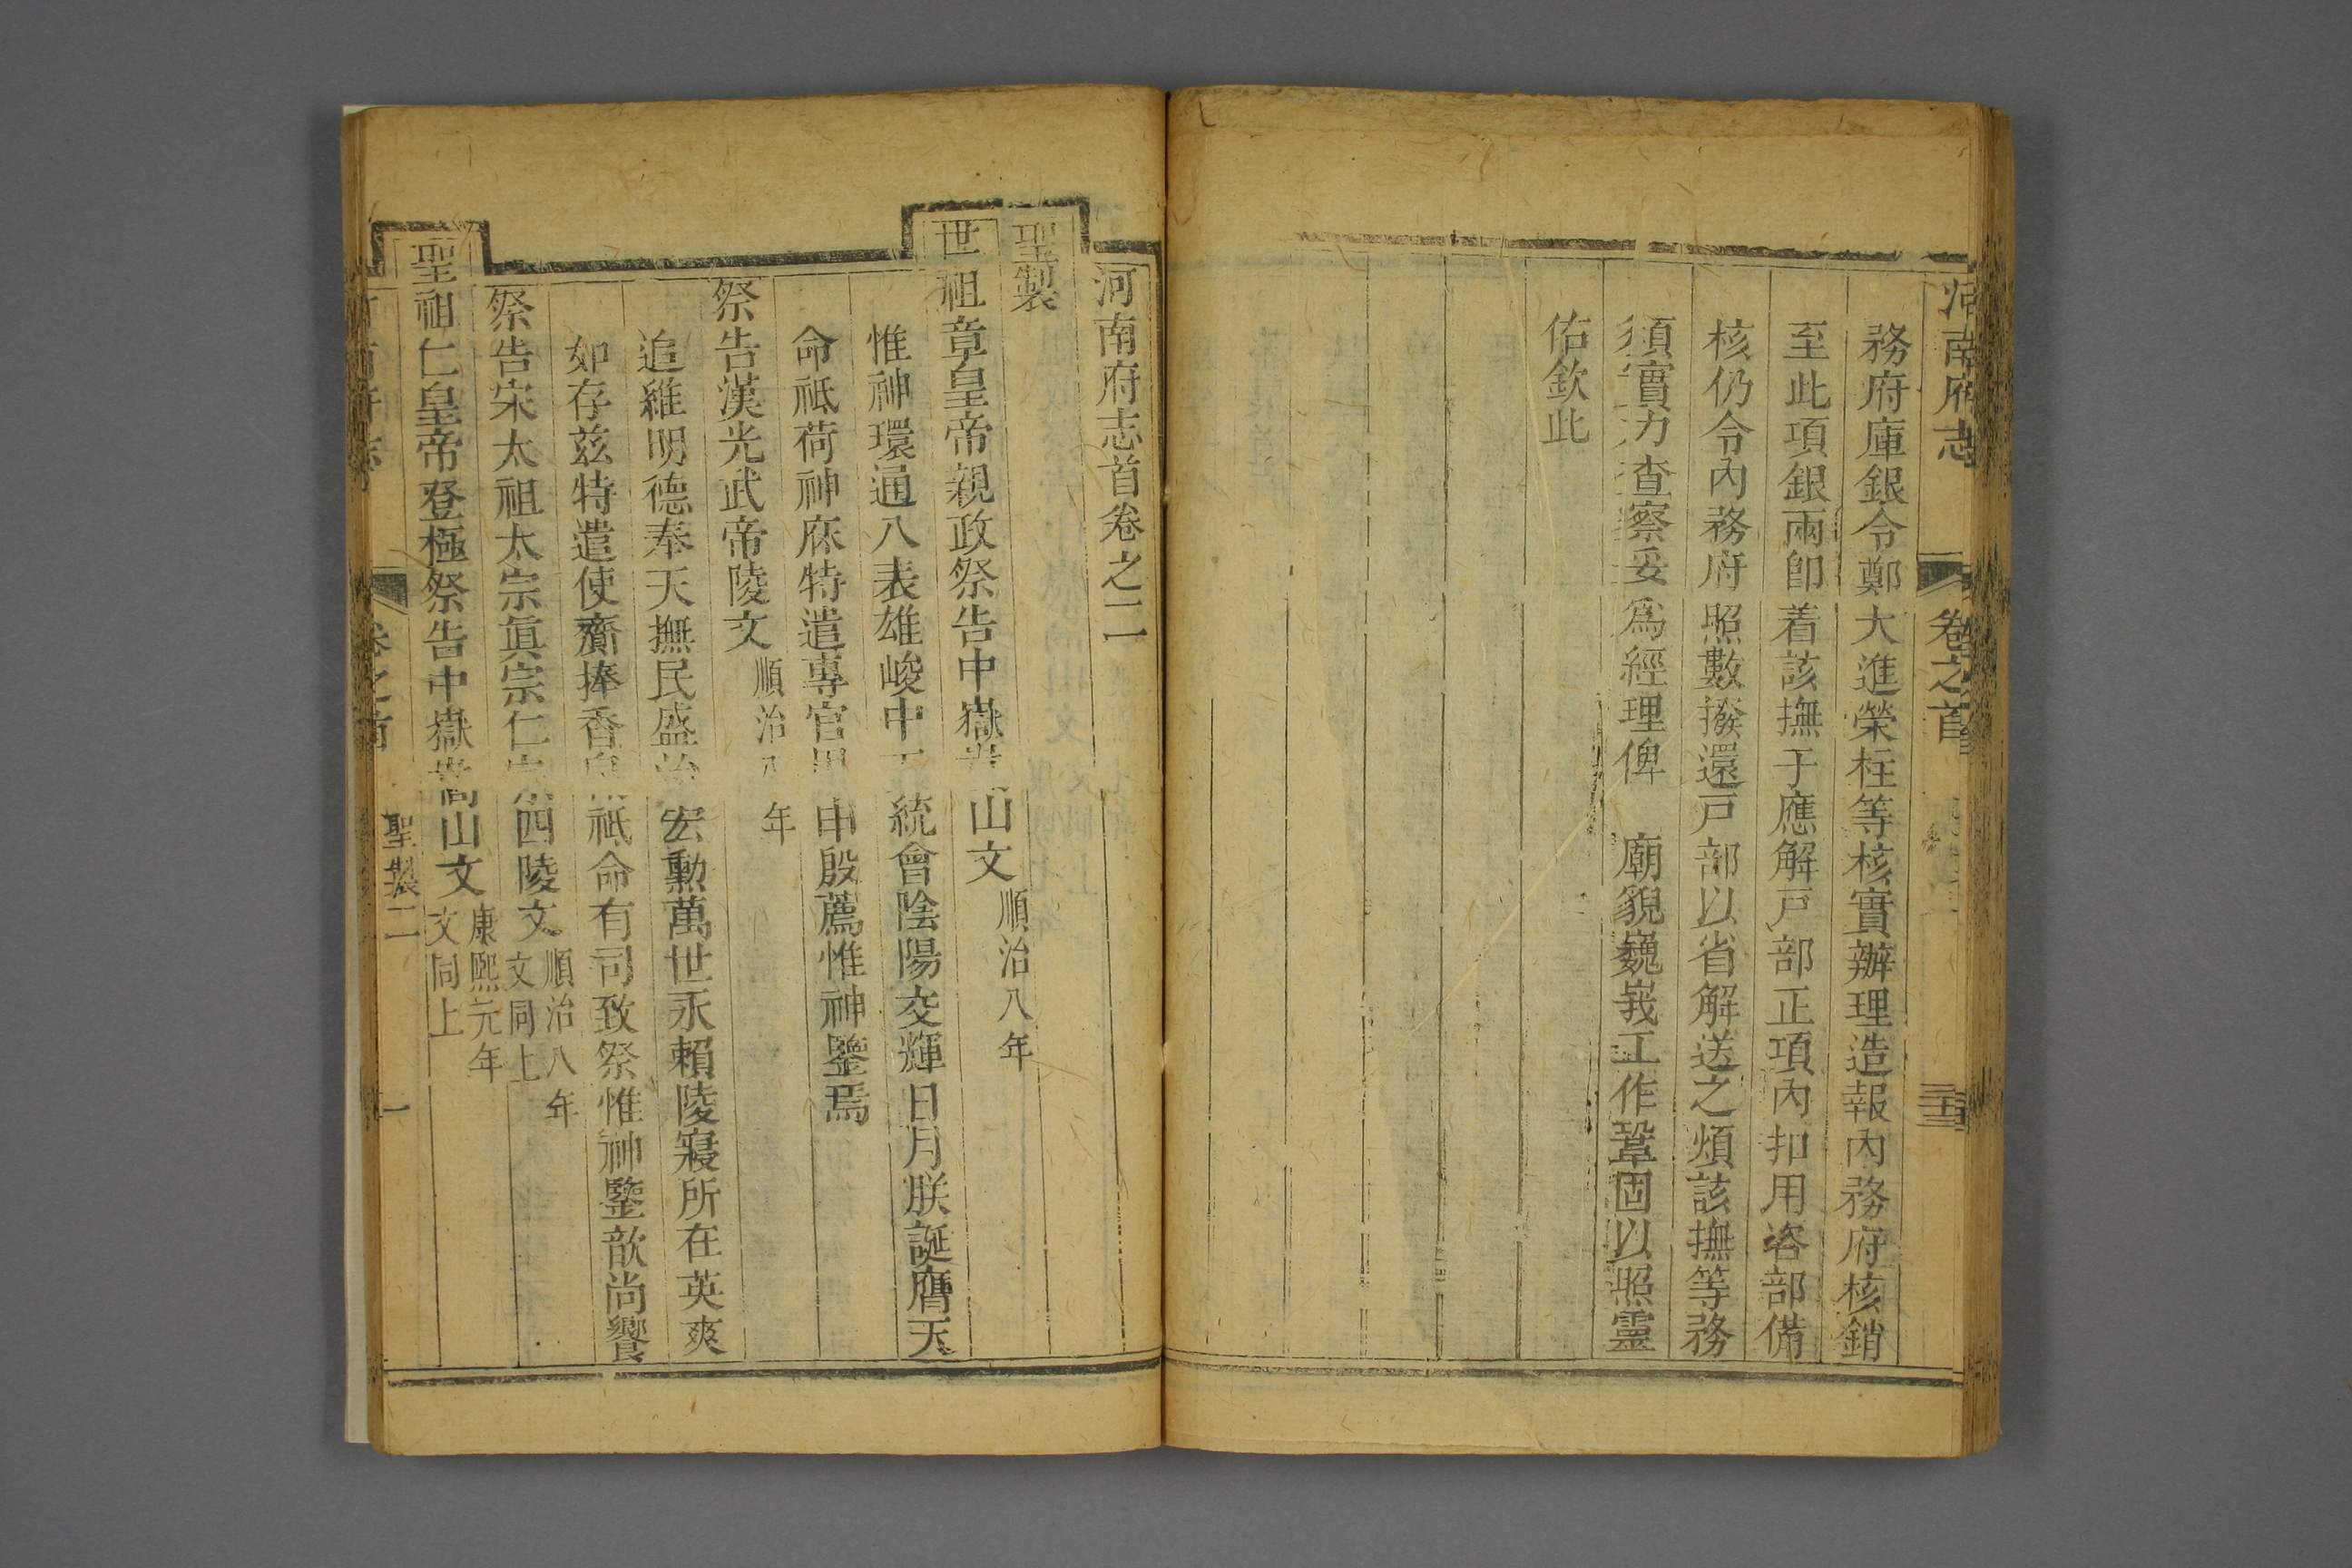 河南府志 卷之首
務府庫銀令鄭大進榮柱等核實辦理造報內務府核銷
至此項銀兩卽着該撫于應解戶部正項內扣用咨部備
核仍令內務府照數撥還戶部以省解送之煩該撫等務
須實力查察妥為經理俾 廟貌巍峩工作鞏固以照靈
佑欽此
河南府志首卷之二
聖製
世祖章皇帝親政祭告中嶽山文 順治八年
惟神環通八表雄峻中統會陰陽交輝日月朕誕膺天
命祗荷神庥特遣專官申殷薦惟神鑒焉
祭告漢光武帝陵文 順治八年
追維明德奉天撫民盛宏勳萬世永賴陵寢所在英爽
如存兹特遣使齎捧香祗命有司致祭惟神鑒歆尚饗
祭告宋太祖太宗眞宗仁四陵文 順治八年 文同上
聖祖仁皇帝登極祭告中嶽嵩山文 康熙元年 文同上
卷之首 聖製二 一